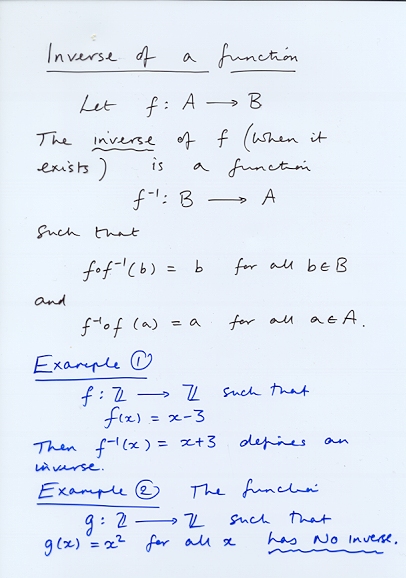 Inverse of a function
Let f: A ⟶ B
The inverse of f (when it
exists) is a function
f⁻¹: B ⟶ A
such that
f∘f⁻¹(b) = b for all b∈B
and
f⁻¹∘f (a) = a for all a∈A.
Example ①
f: ℤ ⟶ ℤ such that
f(x) = x-3
Then f⁻¹(x) = x+3 defines an
inverse.
Example ② The function
g: ℤ ⟶ ℤ such that
g(x) = x² for all x has No inverse.